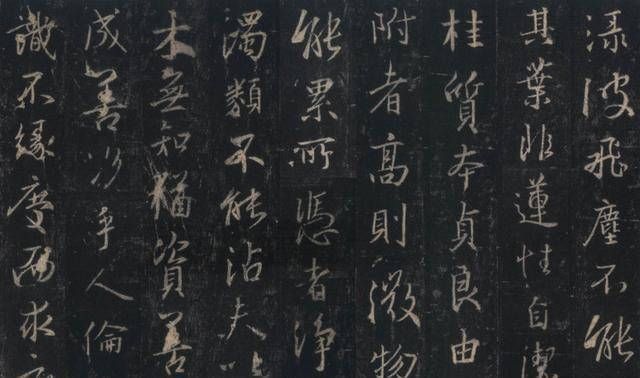 渌波飛塵不能
其葉非蓮性自潔
桂質本貞良由
附者高則微物
能累所憑者淨
濁類不能沾夫以
木無知猶資善
成善況乎人倫
識不緣慶而求